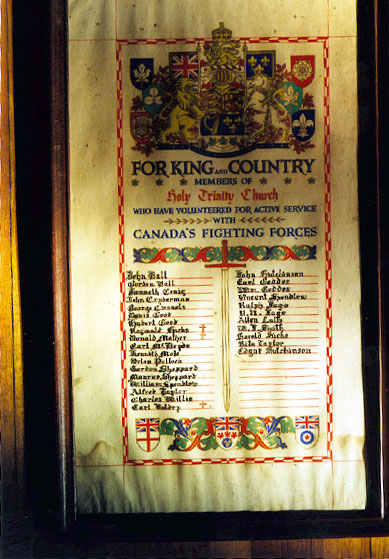 FOR KING AND COUNTRY
MEMBERS OF
Holy Trinity Church
WHO HAVE VOLUNTEERED FOR ACTIVE SERVICE
WITH
CANADA'S FIGHTING FORCES
John Ball
Gordon Ball
Kenneth Craig
John Cryderman
George Cussels
Hubert Good
Reginald Hicks
Donald Mather
Earl McBryde
Kenneth Mole
Orlan Pollock
Gordon Sheppard
Maurice Sheppard
William Spendlow
Alfred Taylor
Charles Willis
Earl
John Hutchinson
Earl Geddes
Wm. Geddes
Vincent Spendlow
Ralph Jago
Allen
W. J. Smith
Harold Hicks
Taylor
Edgar Hutchinson